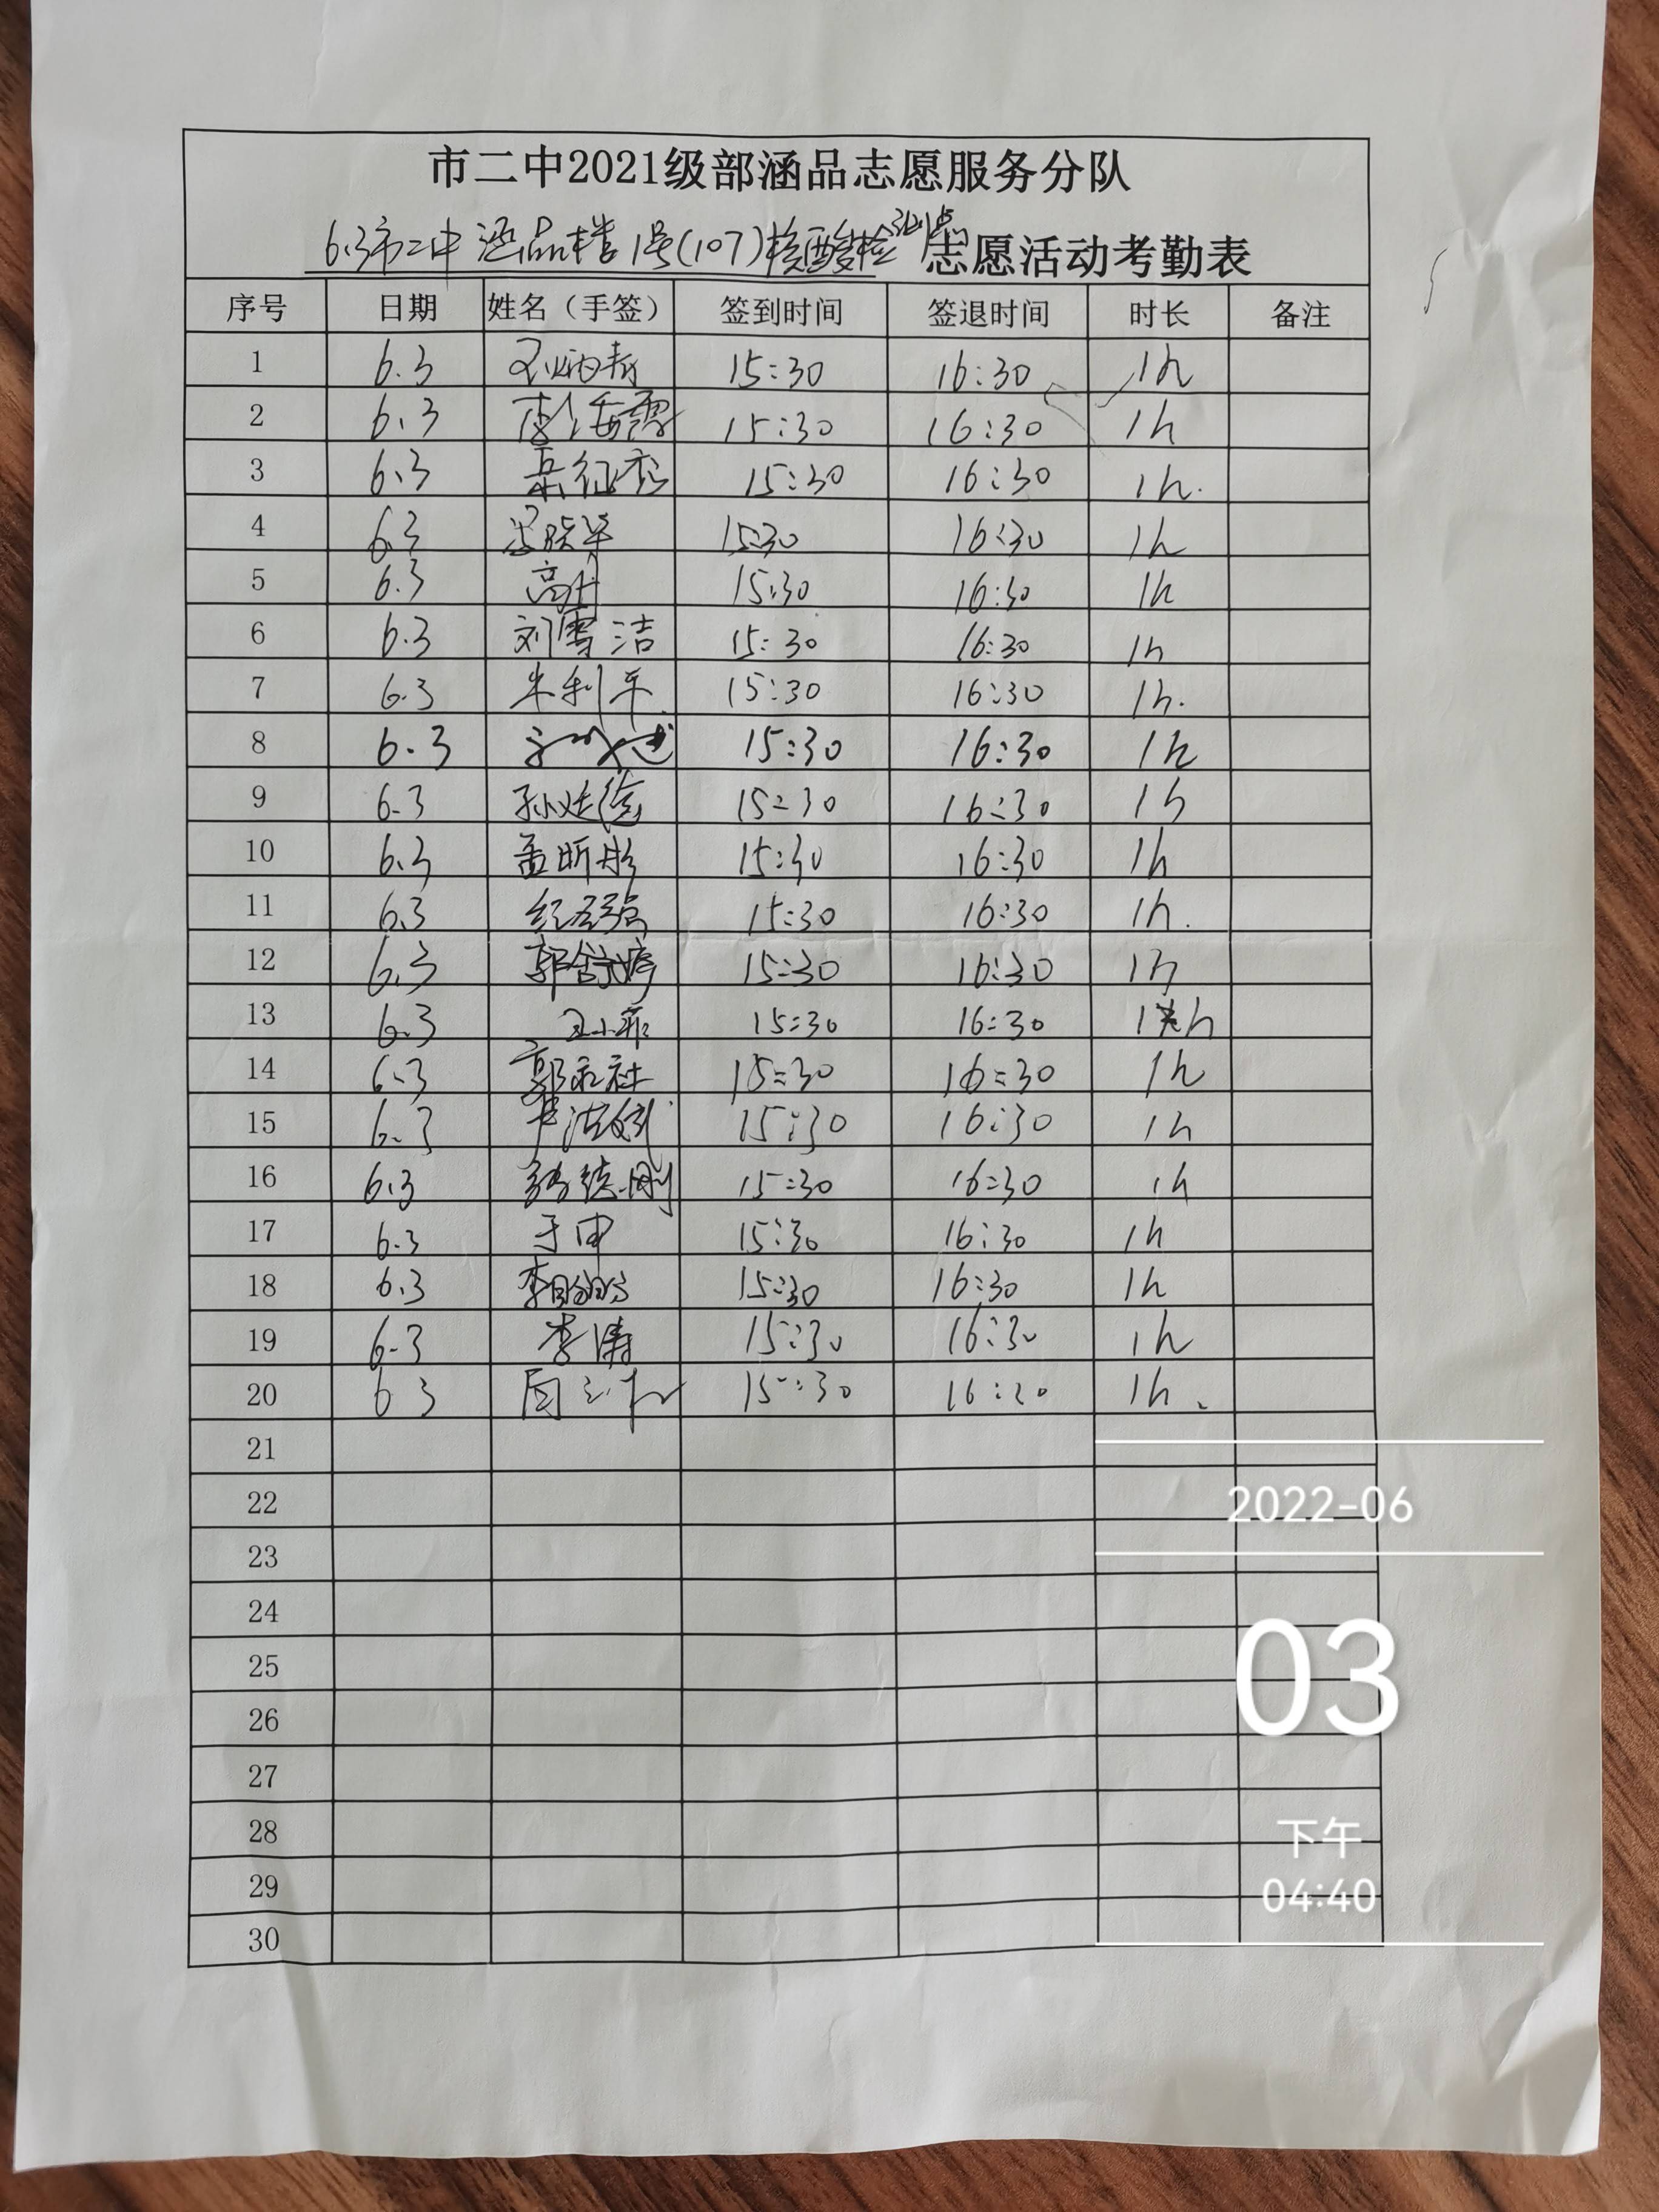 市二中2021级部涵品志愿服务分队
6.3市二中涵品楼1号(107)核酸检测点 志愿活动考勤表
序号 日期 姓名（手签） 签到时间 签退时间 时长 备注
1 6.3 15:30 16:30 1h
2 6.3 15:30 16:30 1h
3 6.3 15:30 16:30 1h.
4 6.3 15:30 16:30 1h
5 6.3 高升 15:30 16:30 1h
6 6.3 刘雪洁 15:30 16:30 1h
7 6.3 朱利平 15:30 16:30 1h.
8 6.3 15:30 16:30 1h
9 6.3 15:30 16:30 1h
10 6.3 孟昕彤 15:30 16:30 1h
11 6.3 15:30 16:30 1h.
12 6.3 郭舒婷 15:30 16:30 1h
13 6.3 王小菲 15:30 16:30 1h
14 6.3 15:30 16:30 1h
15 6.3 15:30 16:30 1h
16 6.3 15:30 16:30 1h
17 6.3 于申 15:30 16:30 1h
18 6.3 15:30 16:30 1h
19 6.3 李涛 15:30 16:30 1h
20 6 3 15:30 1h
21
22
23
24
25
26
27
28
29
30
2022-06
03
下午
04:40